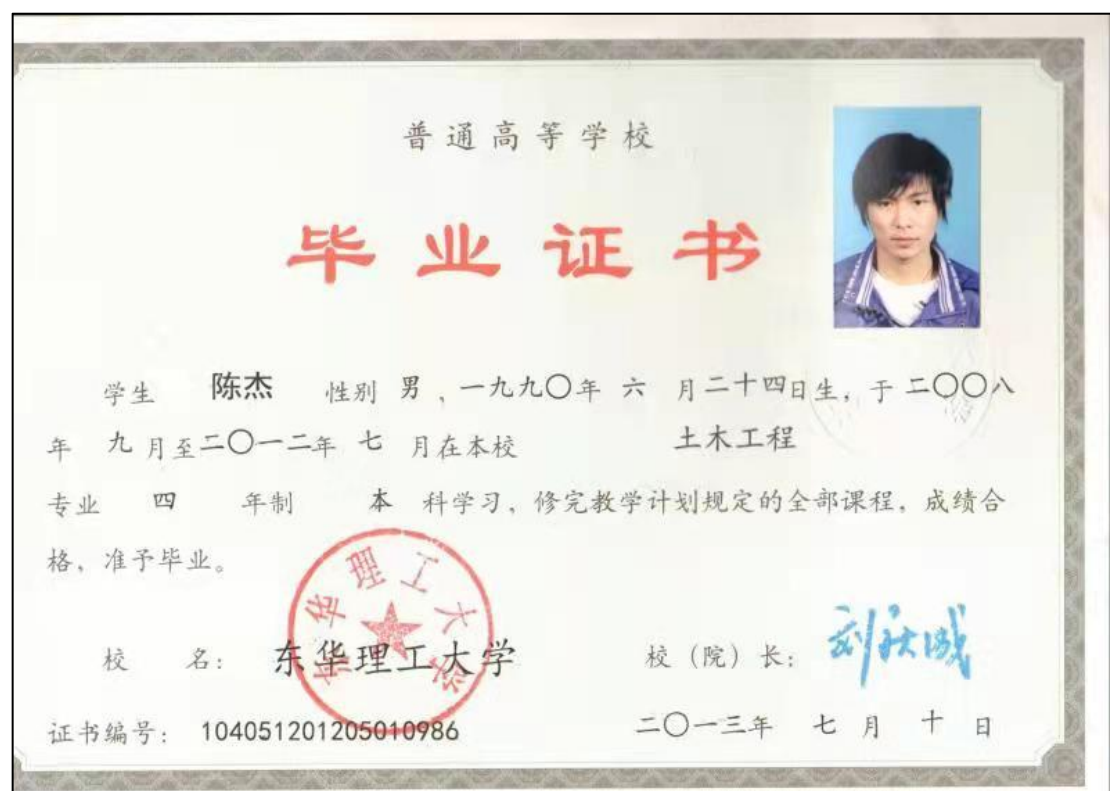 普通高等学校
毕业证书
学生 陈杰 性别 男、一九九〇年 六 月二十四日生，于二〇〇八
年 九 月至二〇一二年 七 月在本校 土木工程
专业 四 年制 本 科学习，修完教学计划规定的全部课程，成绩合
格，准予毕业。
校 名： 东华理工大学 校（院）长：
证书编号： 104051201205010986 二〇一三年 七 月 十 日